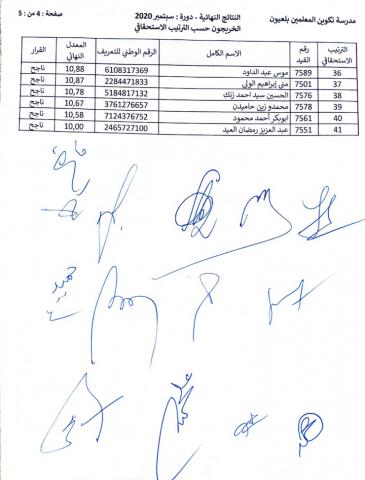 مدرسة تكوين المعلمين بلعيون
النتائج النهائية - دورة : سبتمبر 2020
صفحة : 4 من : 5
الخريجون حسب الترتيب الاستحقاقي
الترتيب الاستحقاقي رقم القيد الاسم الكامل الرقم الوطني للتعريف المعدل النهائي القرار
36 7589 موس عبد الداود 6108317369 10,88 ناجح
37 7501 منى إبراهيم الولي 2284471833 10,87 ناجح
38 7576 الحسين سيد احمد زنك 5184817132 10,78 ناجح
39 7578 محمدو زين حاميدن 3761276657 10,67 ناجح
40 7561 ابوبكر أحمد محمود 7124376752 10,58 ناجح
41 7551 عبد العزيز رمضان العيد 2465727100 10,00 ناجح